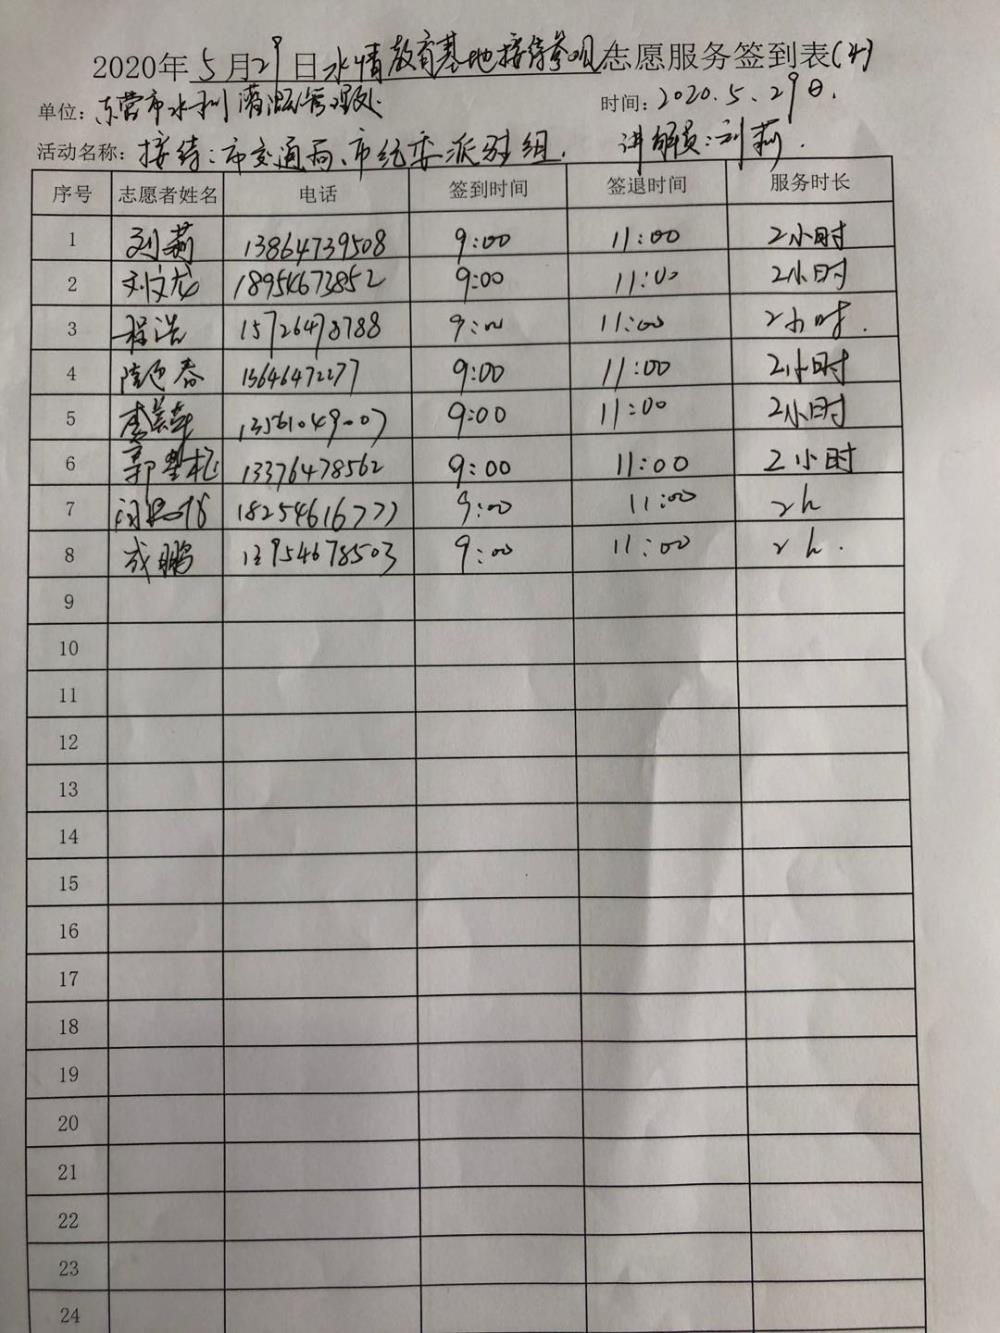 2020年5月29日水情教育基地接待参观志愿服务签到表(4)
单位：东营市水利灌溉管理处 时间：2020.5.29日.
活动名称：接待：市交通局、市纪委派驻组. 讲解员：刘莉.
序号 志愿者姓名 电话 签到时间 签退时间 服务时长
1 刘莉 13864739508 9:00 11:00 2小时
2 刘文龙 18954673852 9:00 11:00 2小时
3 程浩 15726478788 9:00 11:00 2小时.
4 陆迎春 13646472277 9:00 11:00 2小时
5 13561049007 9:00 11:00 2小时
6 郭 13376478562 9:00 11:00 2小时
7 18254616777 9:00 11:00 2h
8 成鹏 13954678503 9:00 11:00 2h.
9
10
11
12
13
14
15
16
17
18
19
20
21
22
23
24